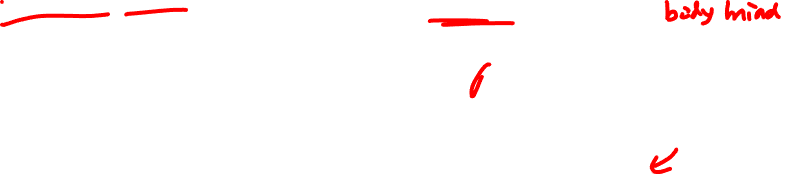 body mind